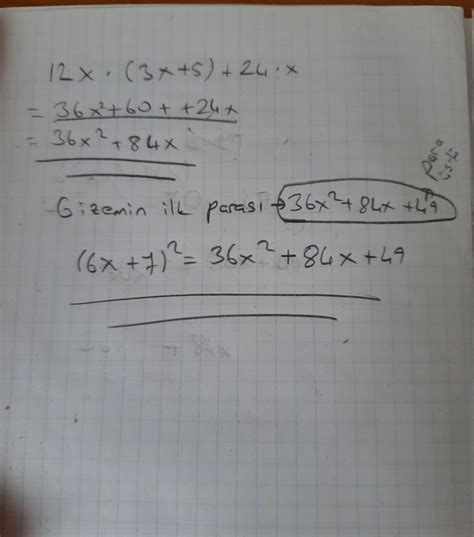 12x · (3x+5) + 24 · x
= 36x²+60 + +24x
= 36x² + 84x
Para üstü
Gizemin ilk parası → 36x² + 84x + 49
(6x + 7)² = 36x² + 84x + 49